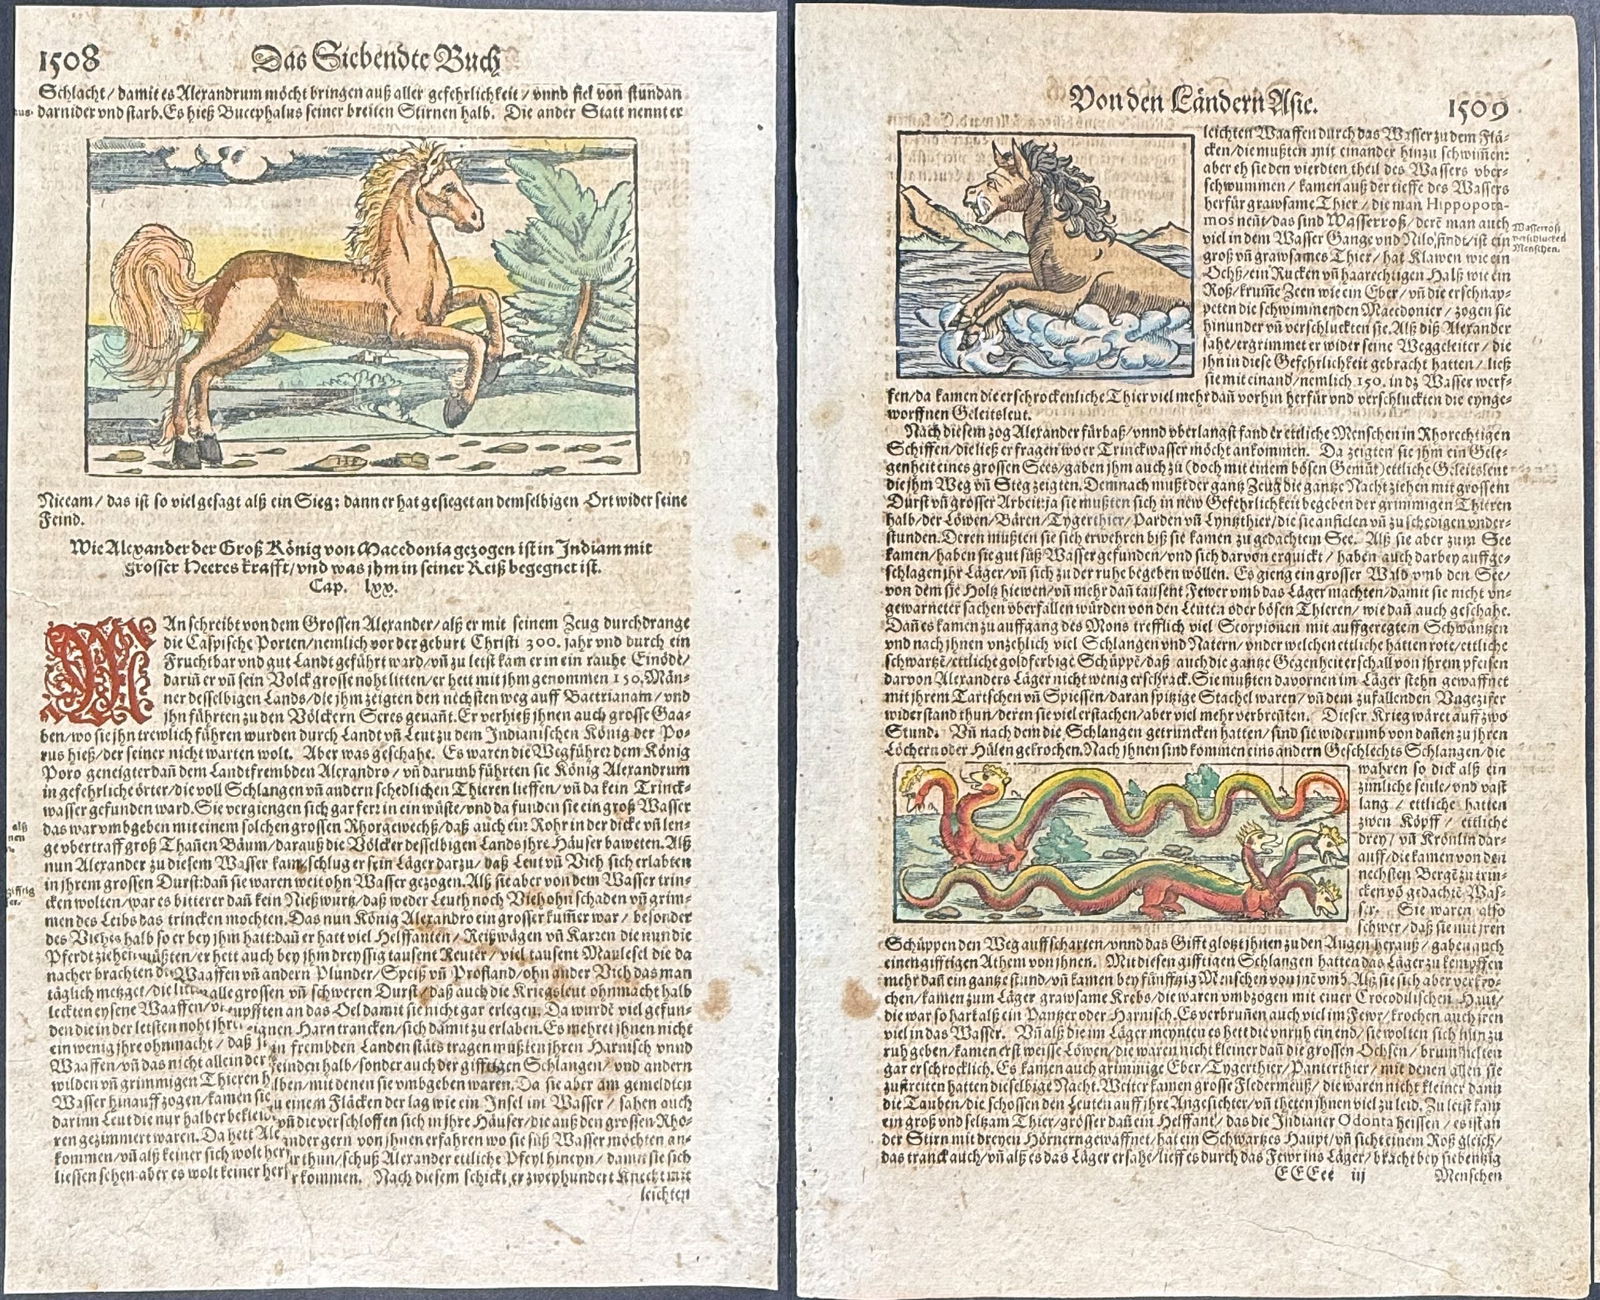 1508 Das Siebendte Buch
Schlacht / damit es Alexandrum möcht bringen auß aller gefehrlichkeit / vnnd fiel von stundan
darnider vnd starb. Es hieß Bucephalus seiner breiten Stirnen halb. Die ander Statt nennt er
HF
Niceam / das ist so viel gesagt alß ein Sieg: dann er hat gesieget an demselbigen Ort wider seine
Feind.
Wie Alexander der Groß König von Macedonia gezogen ist in Indiam mit
grosser Heeres krafft / vnd was jhm in seiner Reiß begegnet ist.
Cap. lxx.
MAn schreibt von dem Grossen Alexander / alß er mit seinem Zeug durchdrange
die Caspische Porten / nemlich vor der geburt Christi 300. jahr vnd durch ein
Fruchtbar vnd gut Landt geführt ward / vñ zu letst kam er in ein rauhe Einöde /
dariñ er vñ sein Volck grosse noht litten / er hett mit jhm genommen 150. Män-
ner desselbigen Lands / die jhm zeigten den nechsten weg auff Bactrianam / vnd
jhn führten zu den Völckern Seres genañt. Er verhieß jhnen auch grosse Gaa-
ben / wo sie jhn trewlich führen wurden durch Landt vñ Leut zu dem Indianischen König der Po-
rus hieß / der seiner nicht warten wolt. Aber was geschahe. Es waren die Wegführer dem König
Poro geneigter dañ dem Landtfrembden Alexandro / vñ darumb führten sie König Alexandrum
in gefehrliche örter / die voll Schlangen vñ andern schedlichen Thieren lieffen / vñ da kein Trinck-
wasser gefunden ward. Sie vergiengen sich gar ferꝛ in ein wüste / vnd da funden sie ein groß Wasser
das war vmbgeben mit einem solchen grossen Rhorgewechß / daß auch ein Rohr in der dicke vñ len-
ge vbertraff groß Thañen Bäum / darauß die Völcker desselbigen Lands jhre Häuser baweten. Alß
nun Alexander zu diesem Wasser kam / schlug er sein Läger darzu / daß Leut vñ Vieh sich erlabten
in jhrem grossen Durst: dañ sie waren weit ohn Wasser gezogen. Alß sie aber von dem Wasser trin-
cken wolten / war es bitterer dañ kein Nießwurtz / daß weder Leuth noch Vieh ohn schaden vñ grim-
men des Leibs das trincken mochten. Das nun König Alexandro ein grosser kum̃er war / besonder
des Viehes halb so er bey jhm hatt: dañ er hatt viel Helffanten / Reißwägen vñ Karzen die nun die
Pferdt ziehen müßten / er hett auch bey jhm dreyssig tausent Reuter / viel tausent Maulesel die da
nacher brachten die Waaffen vñ andern Plunder / Speiß vñ Profiand / ohn ander Vieh das man
täglich metzget / die alle grossen vñ schweren Durst / daß auch die Kriegsleut ohnmacht halb
leckten eysene Waaffen / supfften an das Oel damit sie nicht gar erlegen. Da wurdē viel gefun-
den die in der letsten noht jhre eignen Harn trancken / sich damit zu erlaben. Es mehret jhnen nicht
ein wenig jhre ohnmacht / daß in frembden Landen stäts tragen mußten jhren Harnisch vnnd
Waaffen / vñ das nicht allein der Feinden halb / sonder auch der gifftigen Schlangen / vnd andern
wilden vñ grimmigen Thieren mit denen sie vmbgeben waren. Da sie aber am gemeldten
Wasser hinauff zogen / kamen sie zu einem Fläcken der lag wie ein Insel im Wasser / sahen auch
darinn Leut die nur halber vñ die verschloffen sich in jhre Häuser / die auß den grossen Rho-
ren gezimmert waren. Da hett gern von jhnen erfahren wo sie süß Wasser möchten an-
kommen / vñ alß keiner sich wolt thun / schuß Alexander ettliche Pfeyl hineyn / damit sie sich
liessen sehen: aber es wolt keiner kommen. Nach diesem schickt er zweyhundert Knecht mit
leichten
Von den Ländern Asie. 1509
leichten Waaffen durch das Wasser zu dem Flä-
cken / die mußten mit einander hinzu schwim̃en:
aber eh sie den vierdten theil des Wassers vber-
schwummen / kamen auß der tieffe des Wassers
herfür grawsame Thier / die man Hippopota-
mos neñt / das sind Wasserroß / derē man auch
viel in dem Wasser Gange vnd Nilo findt / ist ein
groß vñ grawsames Thier / hat Klawen wie ein
Ochß / ein Rucken vñ haarechtigen Halß wie ein
Roß / krum̃e Zeen wie ein Eber / vñ die erschnap-
peten die schwimmenden Macedonier / zogen sie
hinunder vñ verschluckten sie. Alß diß Alexander
sahe / ergrimmet er wider seine Weggeleiter / die
jhn in diese Gefehrlichkeit gebracht hatten / ließ
sie mit einand / nemlich 150. in dz Wasser werf-
fen / da kamen die erschrockenliche Thier viel mehr dañ vorhin herfür vnd verschluckten die eynge-
worffnen Geleitsleut.
Wasserroß
verschlucken
Menschen.
Nach diesem zog Alexander fürbaß / vnnd vberlangst fand er ettliche Menschen in Rhorechtigen
Schiffen / die ließ er fragen wo er Trinckwasser möcht ankommen. Da zeigten sie jhm ein Gele-
genheit eines grossen Sees / gaben jhm auch zu (doch mit einem bösen Gemüt) ettliche Geleitsleut
die jhm Weg vñ Steg zeigten. Demnach mußt der gantz Zeug die gantze Nacht ziehen mit grossem
Durst vñ grosser Arbeit: ja sie mußten sich in new Gefehrlichkeit begeben der grimmigen Thieren
halb / der Löwen / Bären / Tygerthier / Parden vñ Lynxthier / die sie anfielen vñ zu schedigen vnder-
stunden. Deren mußten sie sich erwehren biß sie kamen zu gedachtem See. Alß sie aber zum See
kamen / haben sie gut süß Wasser gefunden / vnd sich darvon erquickt / haben auch darbey auffge-
schlagen jhr Läger / vñ sich zu der ruhe begeben wöllen. Es gieng ein grosser Wald vmb den See /
von dem sie Holtz hiewen / vñ mehr dañ tausent Fewer vmb das Läger machten / damit sie nicht vn-
gewarneter sachen vberfallen würden von den Leuten oder bösen Thieren / wie dañ auch geschahe.
Dañ es kamen zu auffgang des Mons trefflich viel Scorpionen mit auffgeregtem Schwäntzen
vnd nach jhnen vnzehlich viel Schlangen vnd Natern / vnder welchen ettliche hatten rote / ettliche
schwartzē / ettliche goldferbige Schüppē / daß auch die gantze Gegenheit erschall von jhrem pfeisen
darvon Alexanders Läger nicht wenig erschrack. Sie mußten da vornen im Läger stehn gewaffnet
mit jhrem Tartschen vñ Spiessen / daran spitzige Stachel waren / vñ dem zufallenden Vngezifer
widerstand thun / deren sie viel erstachen / aber viel mehr verbreñten. Dieser Krieg wäret auff zwo
Stund. Vñ nach dem die Schlangen getruncken hatten / sind sie widerumb von dañen zu jhren
Löchern oder Hülen gekrochen. Nach jhnen sind kommen eins andern Geschlechts Schlangen / die
wahren so dick alß ein
zimliche seule / vnd vast
lang / ettliche hatten
zween Köpff / ettliche
drey / vñ Krönlin dar-
auff / die kamen von den
nechsten Bergē zu trin-
cken vō gedachtē Was-
ser. Sie waren also
schwer / daß sie mit jren
Schüppen den Weg auffscharten / vnnd das Gifft glotzt jhnen zu den Augen herauß / gaben auch
einen gifftigen Athem von jhnen. Mit diesen gifftigen Schlangen hatten das Läger zu kempffen
mehr dañ ein gantze stund / vñ kamen bey fünffzig Menschen von jnē vmb. Alß sie sich aber verkro-
chen / kamen zum Läger grawsame Krebs / die waren vmbzogen mit einer Crocodilischen Haut /
die war so hart alß ein Pantzer oder Harnisch. Es verbruñen auch viel im Fewr / krochen auch jren
viel in das Wasser. Vñ alß die im Läger meynten es hett die vnruh ein end / sie wolten sich nun zu
ruh geben / kamen erst weisse Löwen / die waren nicht kleiner dañ die grossen Ochsen / brummelten
gar erschrocklich. Es kamen auch grimmige Eber / Tygerthier / Panterthier / mit denen allen sie
zustreiten hatten dieselbige Nacht. Weiter kamen grosse Fledermeuß / die waren nicht kleiner dann
die Tauben / die schossen den Leuten auff jhre Angesichter / vñ theten jhnen viel zu leid. Zu letst kam
ein groß vnd seltzam Thier / grösser dañ ein Helffant / das die Indianer Odonta heissen / es ist an
der Stirn mit dreyen Hörnern gewaffnet / hat ein Schwartzes Haupt / vñ sicht einem Roß gleich /
das tranck auch / vñ alß es das Läger ersahe / lieff es durch das Fewr ins Läger / bracht bey siebentzig
EEEee iij Menschen